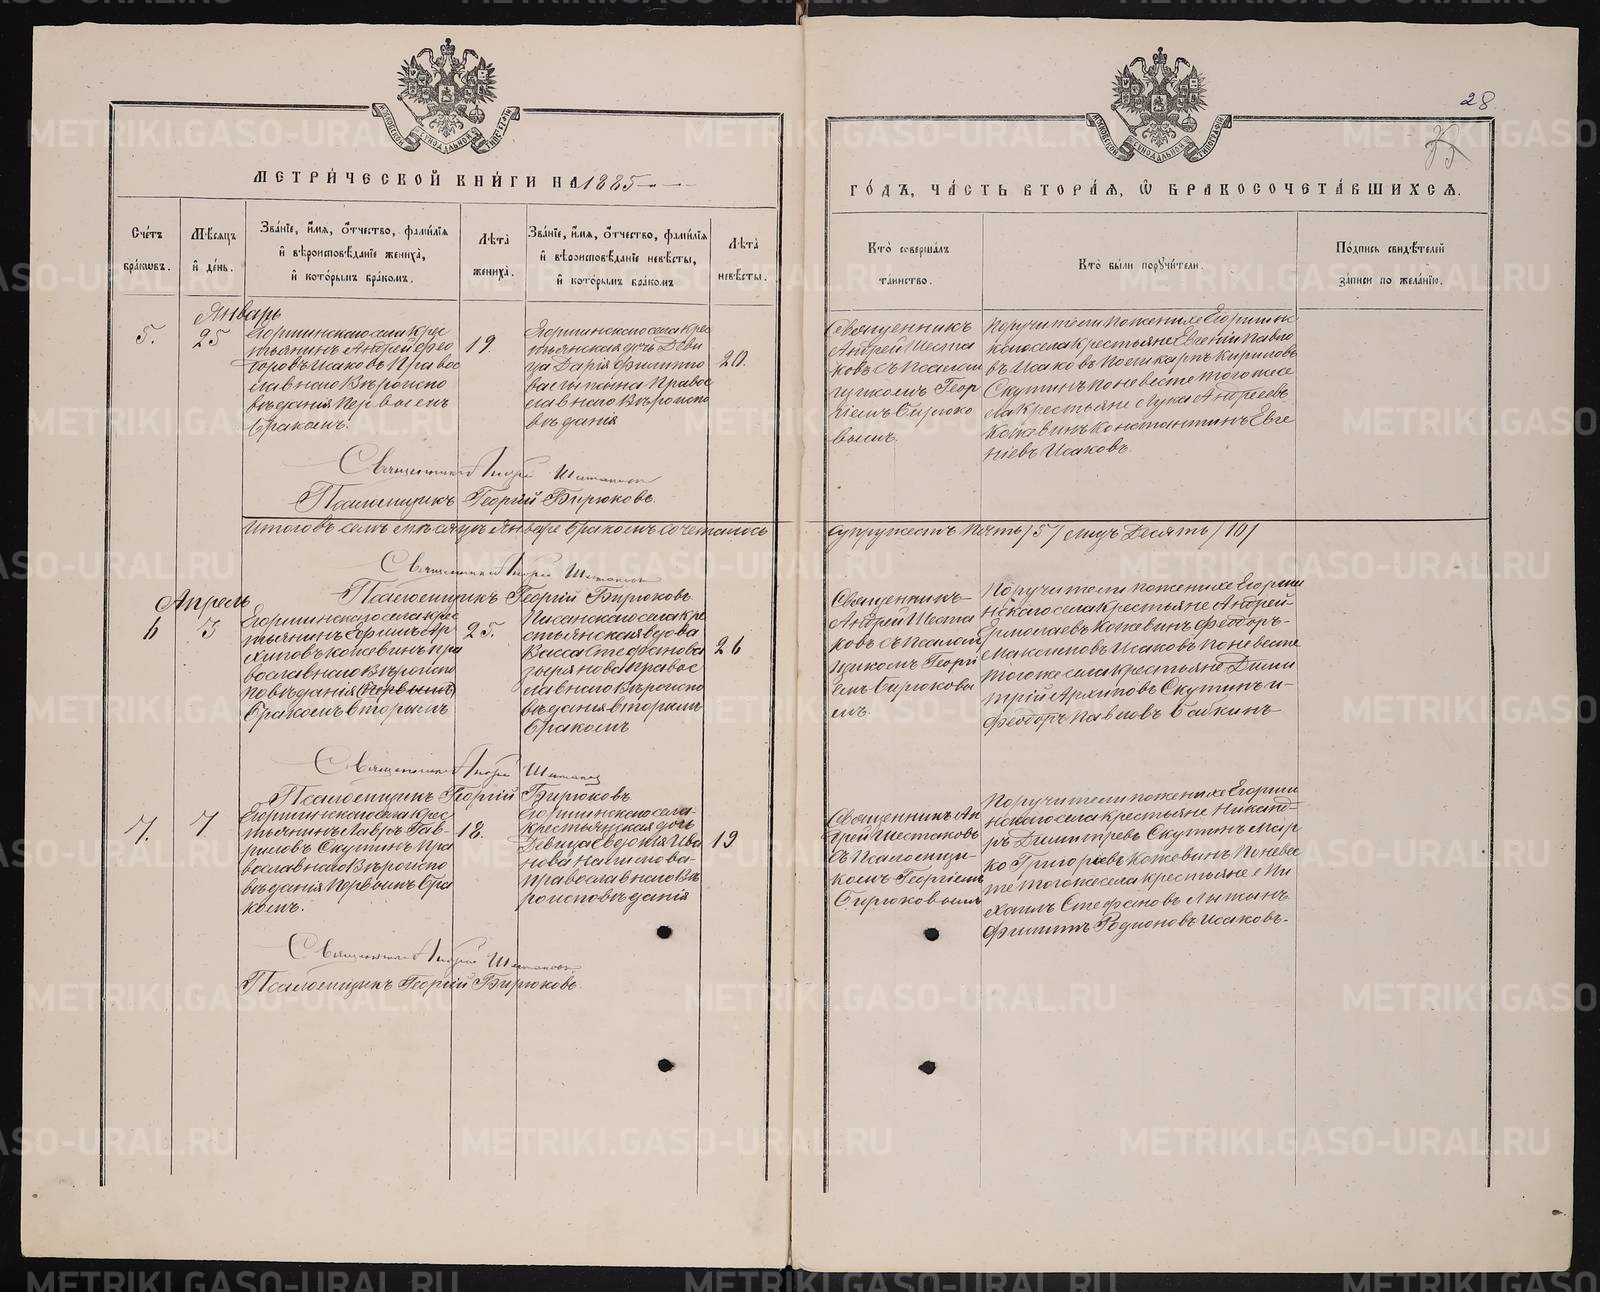 28
МОСКОВСКОЙ СѴНОДАЛЬНОЙ ТИПОГРАФІИ
МЕТРИ́ЧЕСКОЙ КНИ́ГИ НА 1885
ГО́ДЪ, ЧА́СТЬ ВТОРА́Я, Ѿ БРАКОСОЧЕТА́ВШИХСЯ.
Сче́тъ бра́ковъ.
Мѣ́сяцъ и де́нь.
Зва́нїе, и́мя, о́тчество, фами́лїя
и вѣроисповѣ́данїе жениха̀,
и кото́рымъ бра́комъ.
Лѣта̀ жениха̀.
Зва́нїе, и́мя, о́тчество, фами́лїя
и вѣроисповѣ́данїе невѣ́сты,
и кото́рымъ бра́комъ
Лѣта̀ невѣ́сты.
Кто̀ соверша́лъ
та́инство.
Кто̀ бы́ли поручи́тели.
По́дпись свидѣ́телей
за́писи по жела́нїю.
Январь
5.
25
Егоршинскаго села крес
тьянинъ Андрей Фео
доровъ Исаковъ Правос
лавнаго Вѣроиспо
вѣданія Первымъ
бракомъ.
19.
Егоршинскаго села крес
тьянская дочь Деви
ца Дарія Филиппо
ва Правос
лавнаго Вѣроиспо
вѣданія
20.
Священникъ
Андрей Шеста
ковъ съ Псалом
щикомъ Геор
гіемъ Бирюко
вымъ.
Поручители по женихе Егоршинс
каго села крестьяне Евгеній Павло
въ Исаковъ Поликарпъ Кириловъ
Скутинъ по невесте того же се
ла крестьяне Лука Андреевъ
Кожевинъ Константинъ Евге
ніевъ Исаковъ
Священникъ Андрей Шестаковъ
Псаломщикъ Георгій Бирюковъ.
Итого въ семъ месяце Январе бракомъ сочеталось
супружествъ Пять /5/ лицъ Десять /10/
Священникъ Андрей Шестаковъ
Псаломщикъ Георгій Бирюковъ
Апрель
6
3
Егоршинскаго села крес
тьянинъ Ефимъ Ар
хиповъ Кожевинъ пра
вославнаго Вѣроиспо
поведанія Первымъ
бракомъ вторымъ
25.
Писанскаго села кре
стьянская вдова
Васса Стефанова
правос
лавнаго Вѣроиспо
вѣданія вторымъ
бракомъ
26
Священникъ
Андрей Шеста
ковъ съ Псалом
щикомъ Георгі
емъ Бирюковы
мъ.
Поручители по женихе Егорши
нскаго села крестьяне Андрей
Ермолаевъ Кожевинъ Феодоръ
Максимовъ Исаковъ по невесте
того же села крестьяне Дими
трій Архиповъ Скутинъ и
Феодоръ Павловъ Бабкинъ
Священникъ Андрей Шестаковъ
Псаломщикъ Георгій Бирюковъ
7.
7
Егоршинскаго села крес
тьянинъ Лавръ Гав
риловъ Скутинъ пра
вославнаго Вѣроиспо
вѣданія Первымъ бра
комъ.
18.
Егоршинскаго села
крестьянская дочь
девица Евдокія Ива
нова
православнаго Вѣ
роисповѣданія
19
Священникъ Ан
дрей Шестаковъ
съ Псаломщи
комъ Георгіемъ
Бирюковымъ
Поручители по женихе Егорши
нскаго села крестьяне Никанд
ръ Димитревъ Скутинъ Мар
ко Григоріевъ Кожевинъ по невес
те того же села крестьяне Ми
хаилъ Стефановъ
Филиппъ Родионовъ Исаковъ
Священникъ Андрей Шестаковъ
Псаломщикъ Георгій Бирюковъ
METRIKI.GASO-URAL.RU